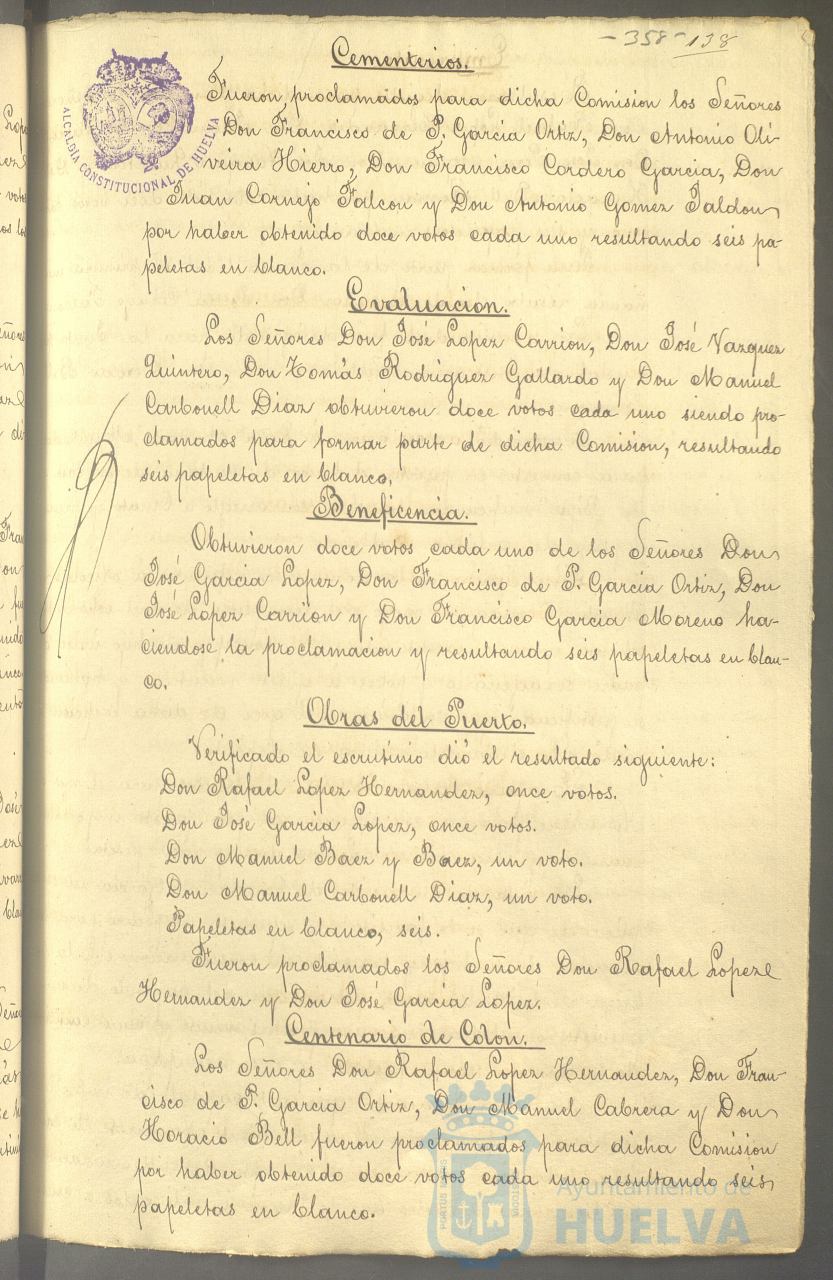 - 358 - 138
Cementerios.
Fueron proclamados para dicha Comision los Señores
Don Francisco de P. Garcia Ortiz, Don Antonio Oli-
veira Hierro, Don Francisco Cordero Garcia, Don
Juan Cornejo Falcon y Don Antonio Gomez Jaldon
por haber obtenido doce votos cada uno resultando seis pa-
peletas en blanco.
ALCALDIA CONSTITUCIONAL DE HUELVA
Evaluacion.
Los Señores Don José Lopez Carrion, Don José Vazquez
Quintero, Don Tomás Rodriguez Gallardo y Don Manuel
Carbonell Diaz obtuvieron doce votos cada uno siendo pro-
clamados para formar parte de dicha Comision, resultando
seis papeletas en blanco.
Beneficencia.
Obtuvieron doce votos cada uno de los Señores Don
José Garcia Lopez, Don Francisco de P. Garcia Ortiz, Don
José Lopez Carrion y Don Francisco Garcia Moreno ha-
ciendose la proclamacion y resultando seis papeletas en blan-
co.
Obras del Puerto.
Verificado el escrutinio dió el resultado siguiente:
Don Rafael Lopez Hernandez, once votos.
Don José Garcia Lopez, once votos.
Don Manuel Baez y Baez, un voto.
Don Manuel Carbonell Diaz, un voto.
Papeletas en blanco, seis.
Fueron proclamados los Señores Don Rafael Lopez
Hernandez y Don José Garcia Lopez.
Centenario de Colon.
Los Señores Don Rafael Lopez Hernandez, Don Fran-
cisco de P. Garcia Ortiz, Don Manuel Cabrera y Don
Horacio Bell fueron proclamados para dicha Comision
por haber obtenido doce votos cada uno resultando seis
papeletas en blanco.
Ayuntamiento de
HUELVA